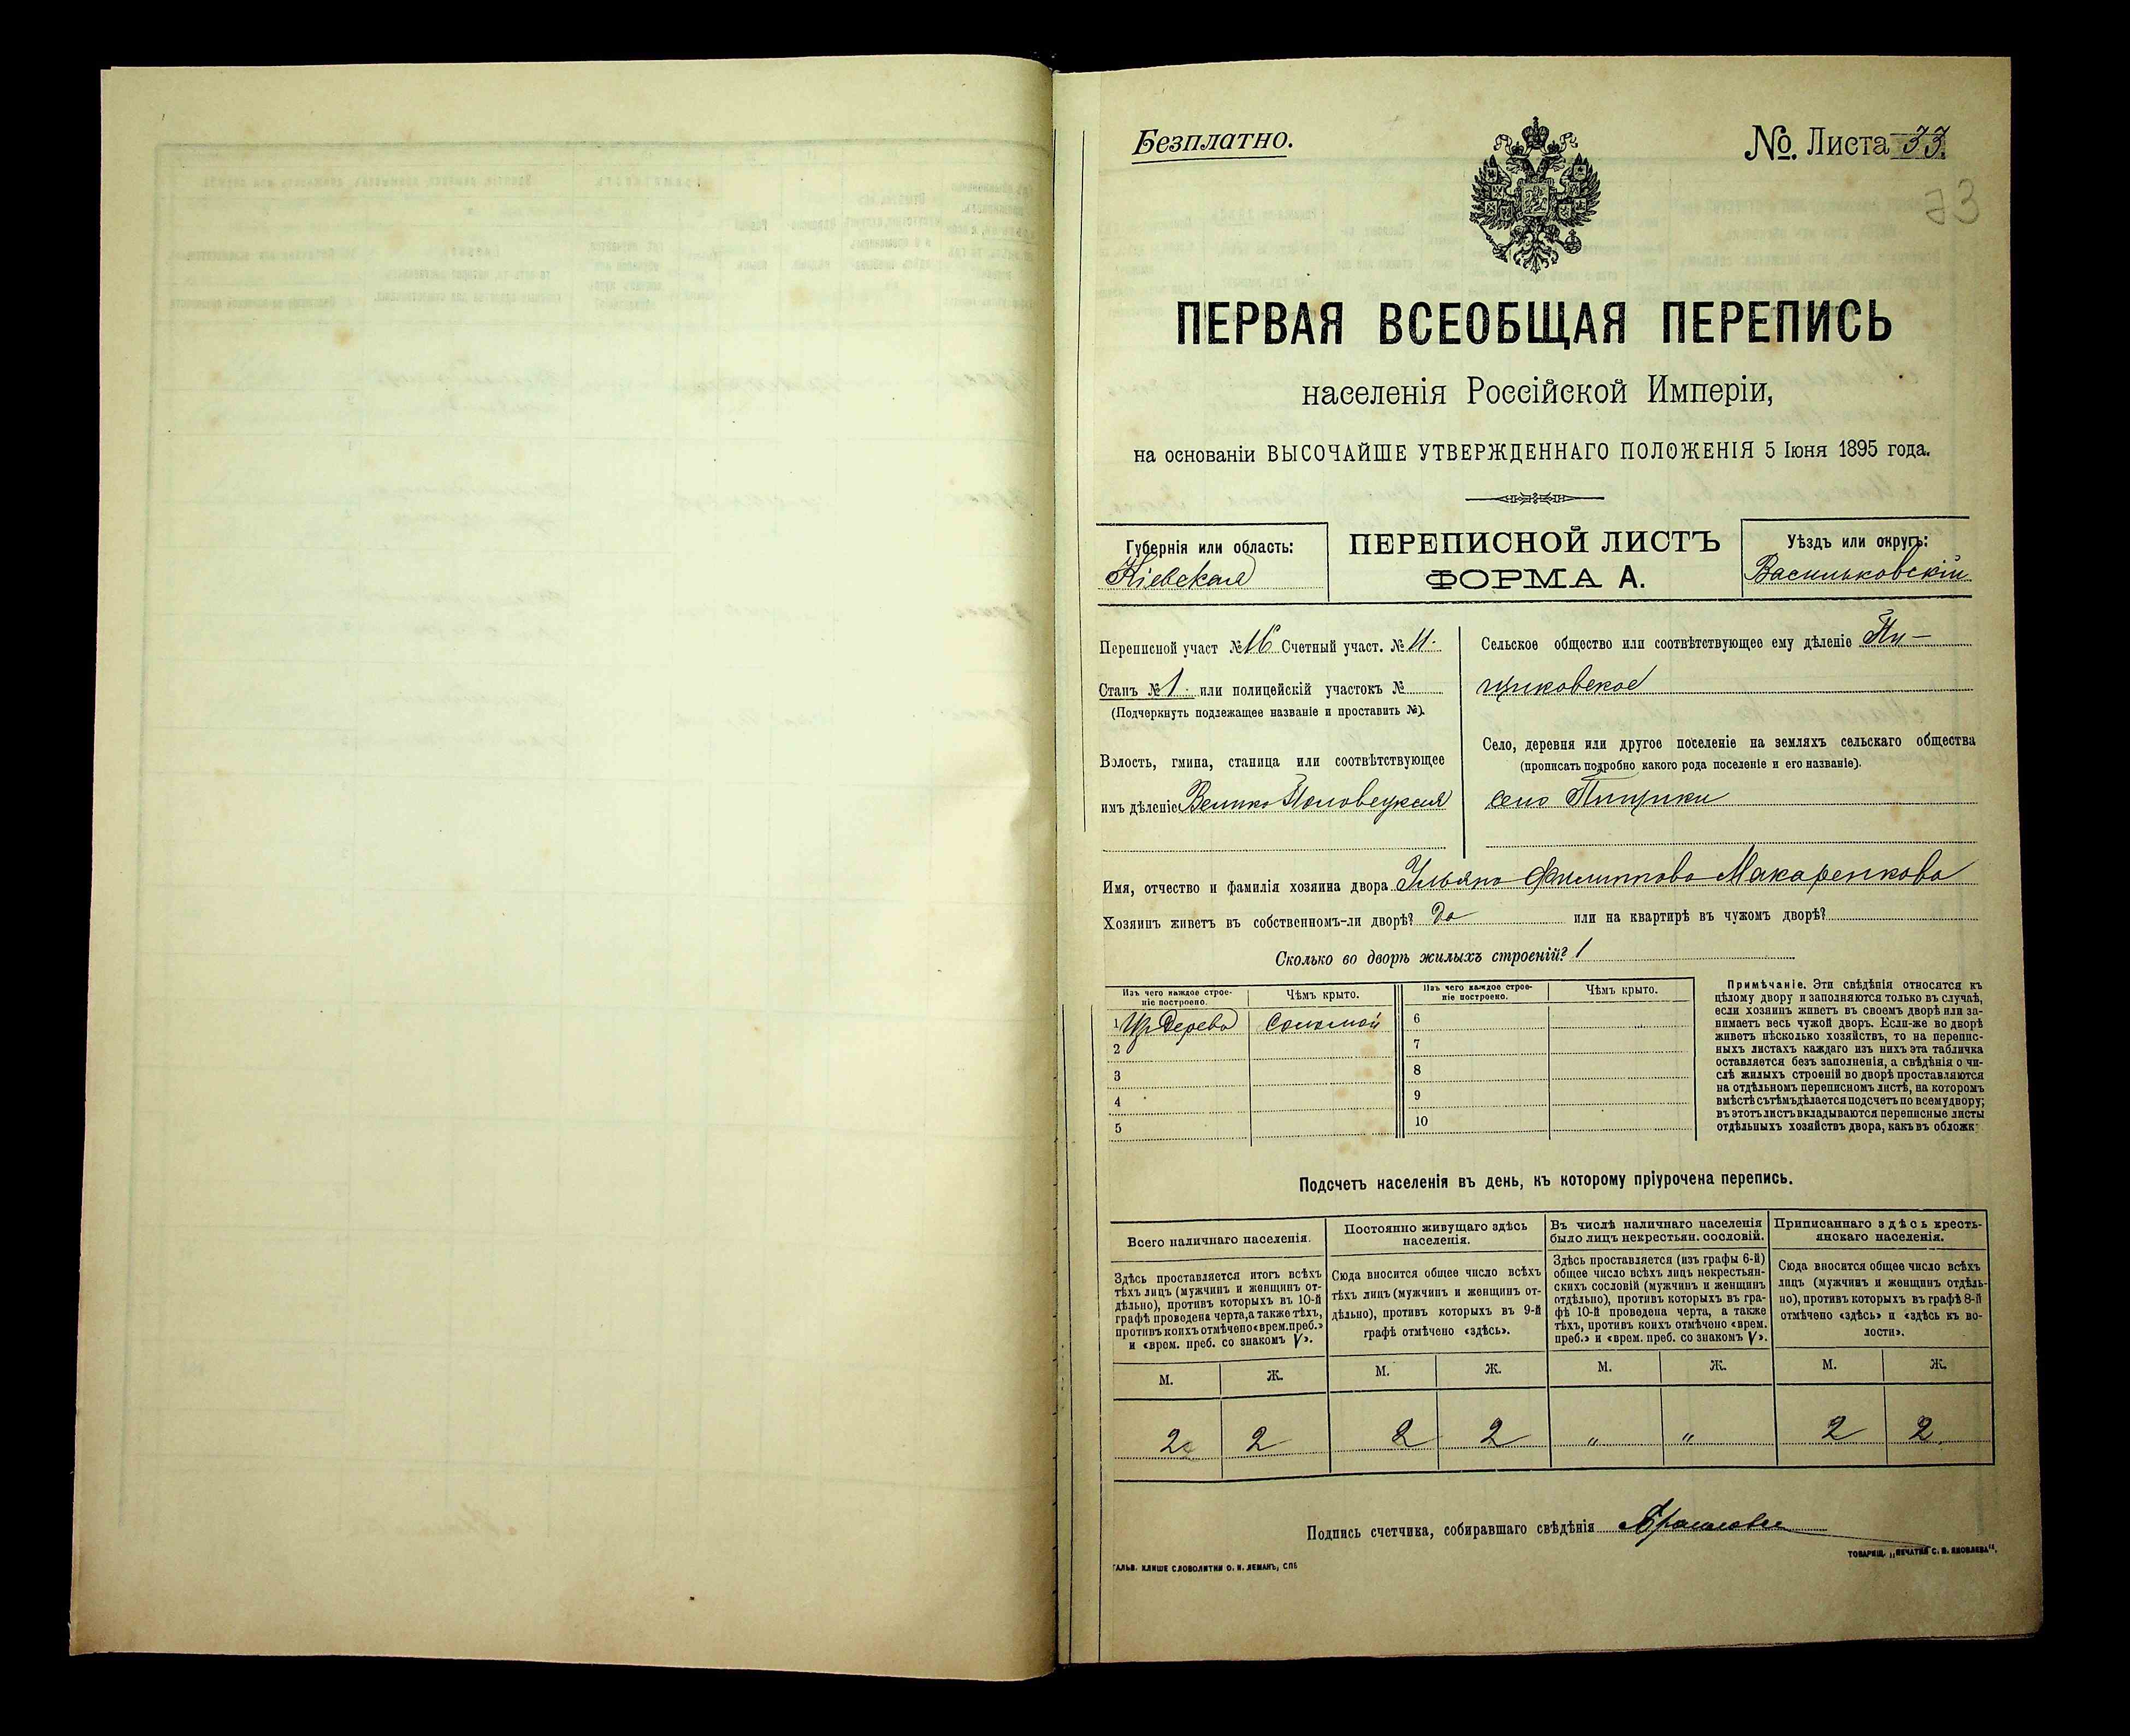 Безплатно.
№. Листа 33.
73
ПЕРВАЯ ВСЕОБЩАЯ ПЕРЕПИСЬ
населенія Россійской Имперіи,
на основаніи ВЫСОЧАЙШЕ УТВЕРЖДЕННАГО ПОЛОЖЕНІЯ 5 Іюня 1895 года.
Губернія или область:
Кіевская
ПЕРЕПИСНОЙ ЛИСТЪ
ФОРМА А.
Уѣздъ или округъ:
Васильковскій
Переписной участ №16 Счетный участ. № 11.
Станъ № 1. или полицейскій участокъ №
(Подчеркнуть подлежащее названіе и проставить №).
Волость, гмина, станица или соотвѣтствующее
имъ дѣленіе Велико Половецкая
Сельское общество или соотвѣтствующее ему дѣленіе Пи-
щиковское
Село, деревня или другое поселеніе на земляхъ сельскаго общества
(прописать подробно какого рода поселеніе и его названіе).
село Пищики
Имя, отчество и фамилія хозяина двора Ульяна Филиппова Макаренкова
Хозяинъ живетъ въ собственномъ-ли дворѣ? Да или на квартирѣ въ чужомъ дворѣ?
Сколько во дворѣ жилыхъ строеній? 1
Изъ чего каждое строе-
ніе построено.
Чѣмъ крыто.
Изъ чего каждое строе-
ніе построено.
Чѣмъ крыто.
1 Из дерева соломой
2
3
4
5
6
7
8
9
10
Примѣчаніе. Эти свѣдѣнія относятся къ
цѣлому двору и заполняются только въ случаѣ,
если хозяинъ живетъ въ своемъ дворѣ или за-
нимаетъ весь чужой дворъ. Если-же во дворѣ
живетъ нѣсколько хозяйствъ, то на перепис-
ныхъ листахъ каждаго изъ нихъ эта табличка
оставляется безъ заполненія, а свѣдѣнія о чи-
слѣ жилыхъ строеній во дворѣ проставляются
на отдѣльномъ переписномъ листѣ, на которомъ
вмѣстѣ съ тѣмъ дѣлается подсчетъ по всему двору;
въ этотъ листъ вкладываются переписные листы
отдѣльныхъ хозяйствъ двора, какъ въ обложк
Подсчетъ населенія въ день, къ которому пріурочена перепись.
Всего наличнаго населенія.
Здѣсь проставляется итогъ всѣхъ
тѣхъ лицъ (мужчинъ и женщинъ от-
дѣльно), противъ которыхъ въ 10-й
графѣ проведена черта, а также тѣхъ,
противъ коихъ отмѣчено «врем. преб.»
и «врем. преб. со знакомъ V».
Постоянно живущаго здѣсь
населенія.
Сюда вносится общее число всѣхъ
тѣхъ лицъ (мужчинъ и женщинъ от-
дѣльно), противъ которыхъ въ 9-й
графѣ отмѣчено «здѣсь».
Въ числѣ наличнаго населенія
было лицъ некрестьян. сословій.
Здѣсь проставляется (изъ графы 6-й)
общее число всѣхъ лицъ некрестьян-
скихъ сословій (мужчинъ и женщинъ
отдѣльно), противъ которыхъ въ гра-
фѣ 10-й проведена черта, а также
тѣхъ, противъ коихъ отмѣчено «врем.
преб.» и «врем. преб. со знакомъ V».
Приписаннаго здѣсь кресть-
янскаго населенія.
Сюда вносится общее число всѣхъ
лицъ (мужчинъ и женщинъ отдѣль-
но), противъ которыхъ въ графѣ 8-й
отмѣчено «здѣсь» и «здѣсь къ во-
лости».
М. Ж. М. Ж. М. Ж. М. Ж.
2 2 2 2 " " 2 2
Подпись счетчика, собиравшаго свѣдѣнія
ГАЛЬВ. КЛИШЕ СЛОВОЛИТНИ О. И. ЛЕМАНЪ, СПБ
ТОВАРИЩ. „ПЕЧАТНЯ С. П. ЯКОВЛЕВА".